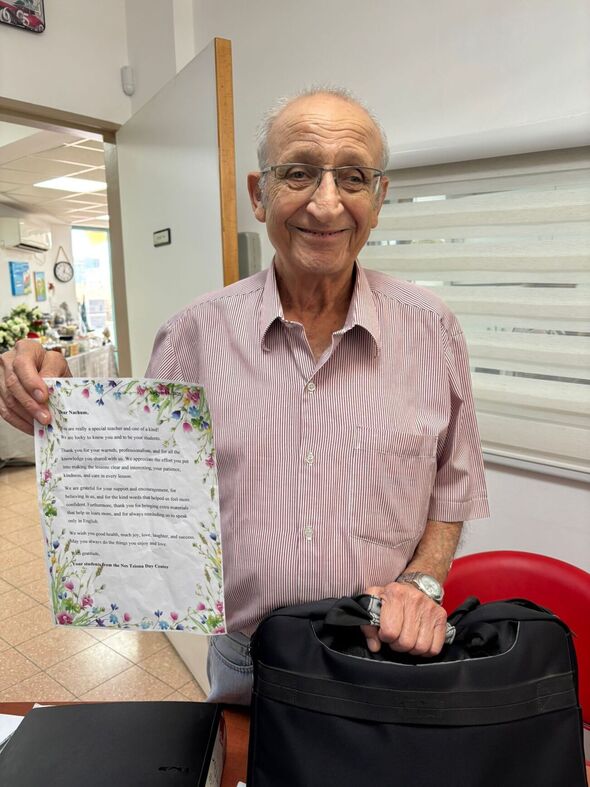 Dear Nachum,
You are really a special teacher and one of a kind!
We are lucky to know you and to be your students.
Thank you for your warmth, professionalism, and for all the
knowledge you shared with us. We appreciate the effort you put
into making the lessons clear and interesting, your patience,
kindness, and care in every lesson.
We are grateful for your support and encouragement, for
believing in us, and for the kind words that helped us feel more
confident. Furthermore, thank you for bringing extra materials
that help us learn more, and for always reminding us to speak
only in English.
We wish you good health, much joy, love, laughter, and success.
May you always do the things you enjoy and love.
With gratitude,
Your students from the Nes Tziona Day Center